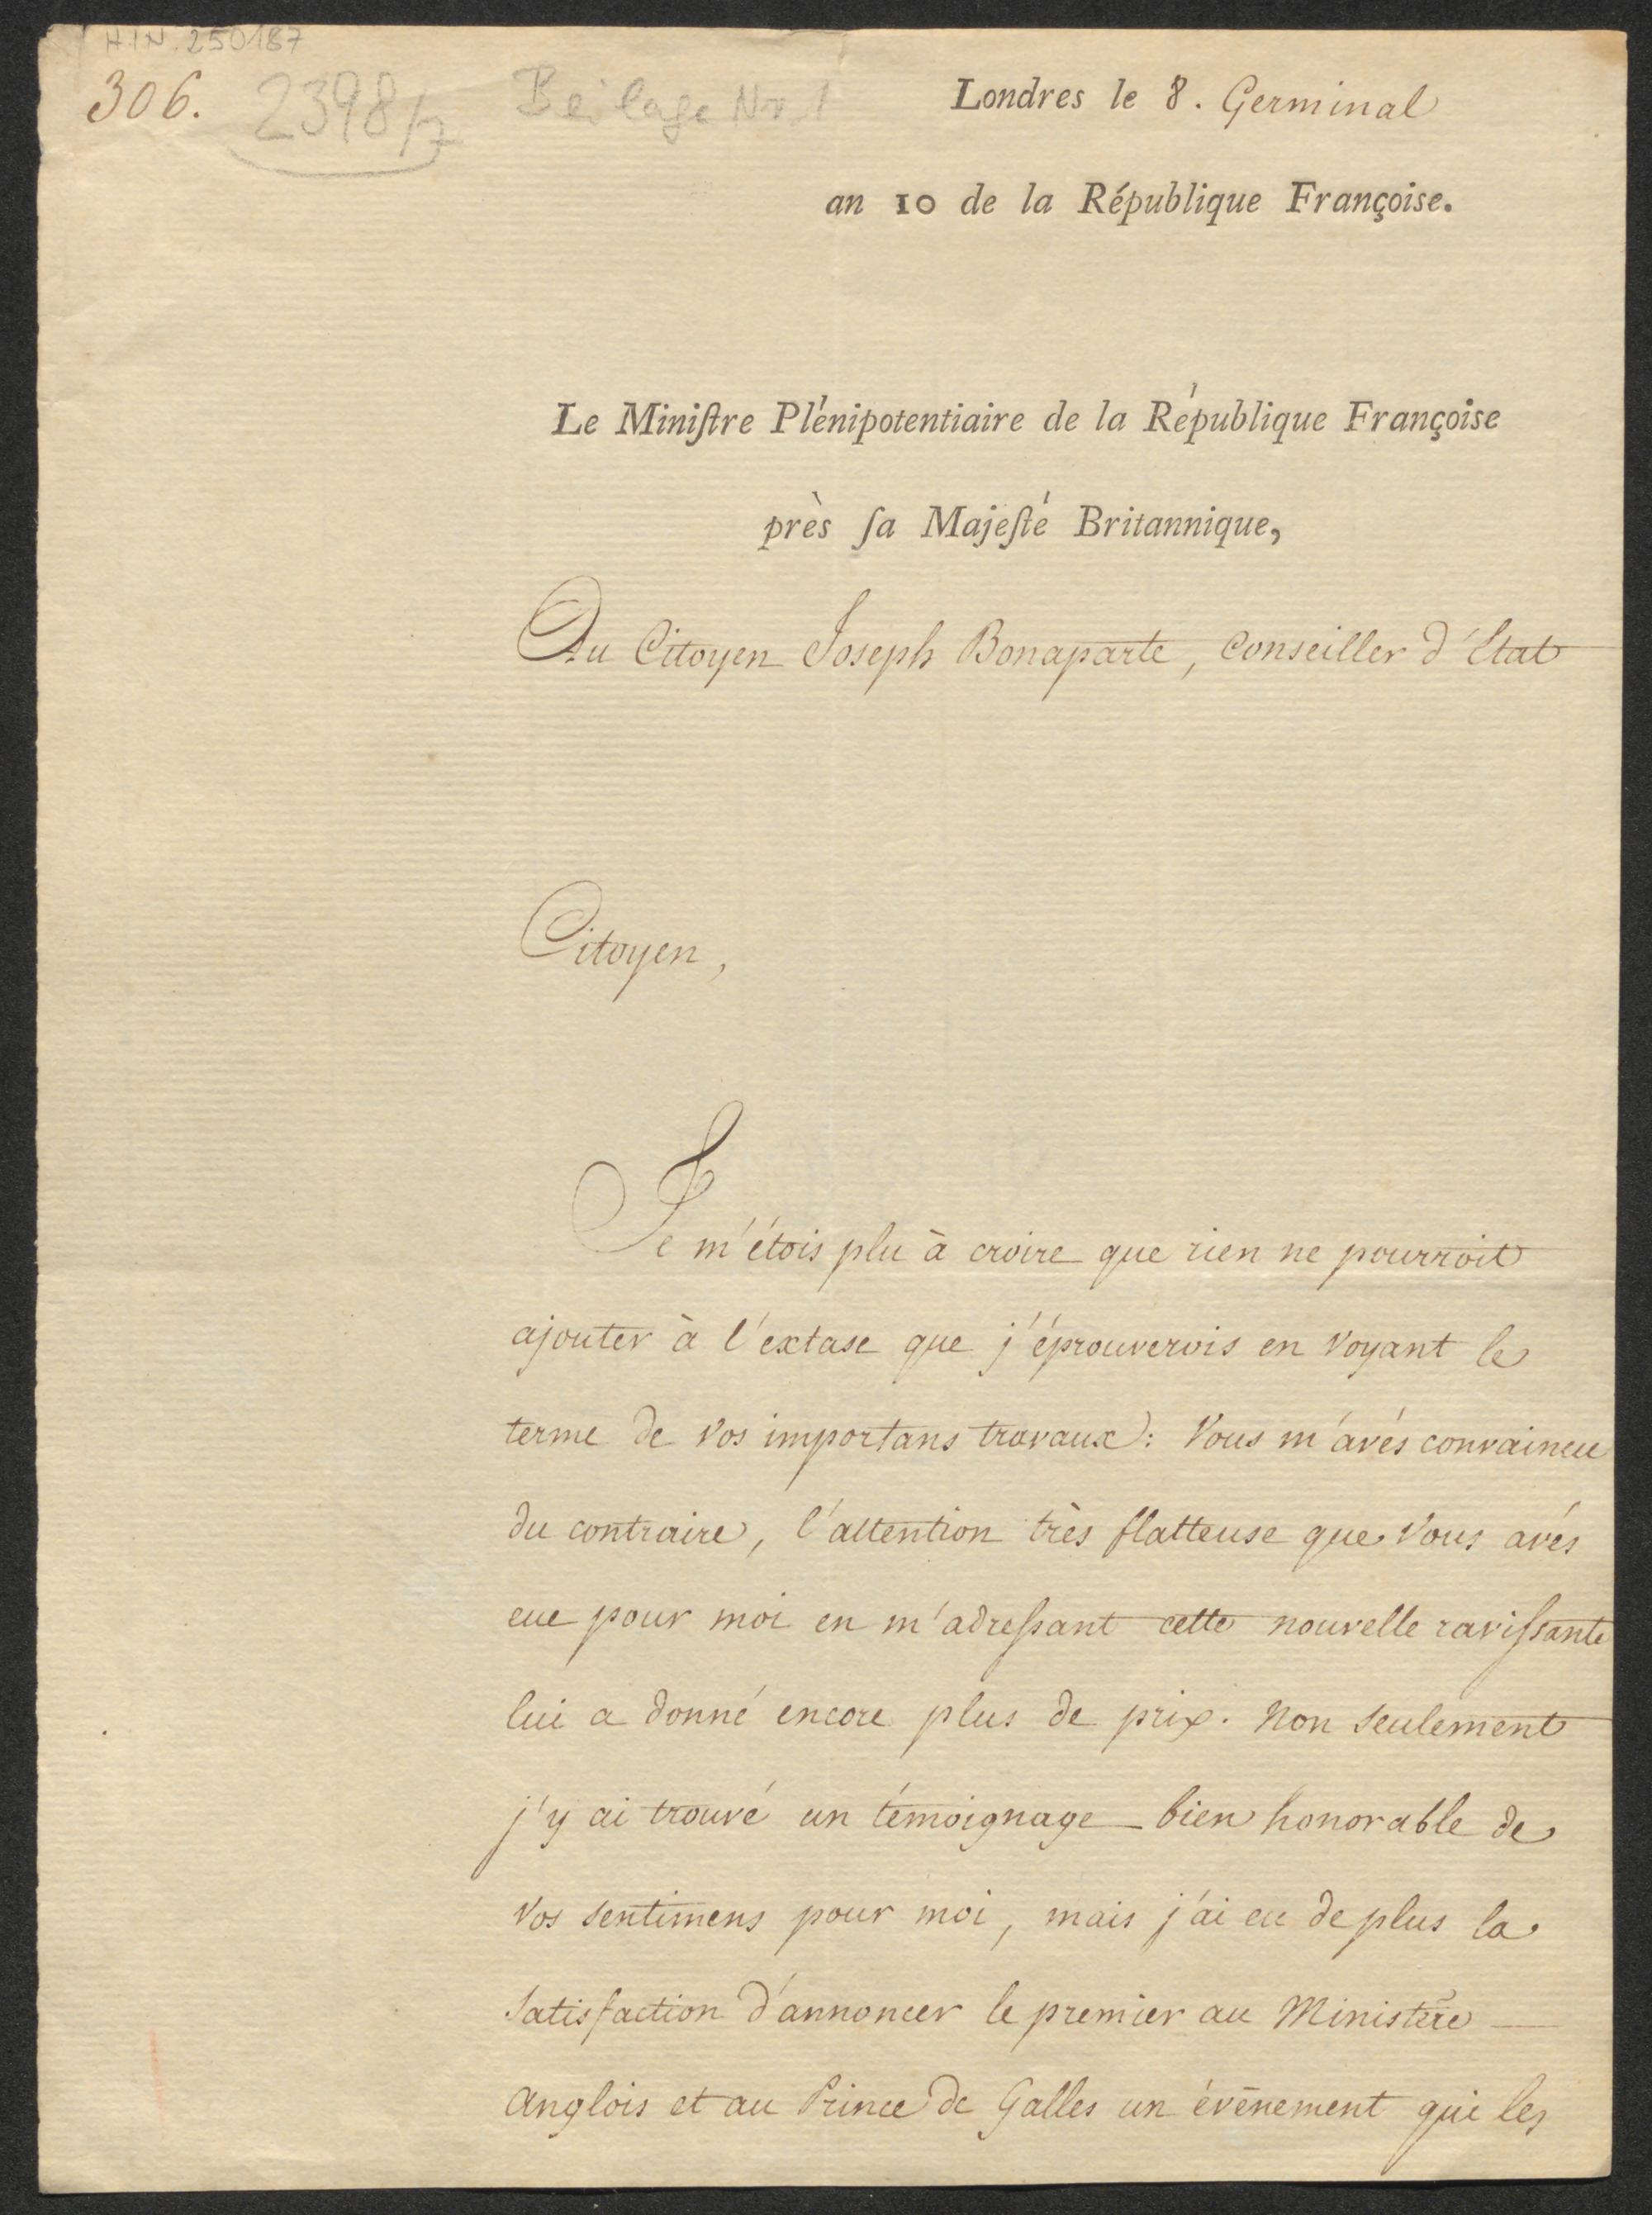 H.I.N. 250187
306. 2398/7 Beilage Nr. 1 Londres le 8. Germinal
an 10 de la République Françoise.
Le Miniſtre Plénipotentiaire de la République Françoise
près ſa Majeſté Britannique,
Au Citoyen Joseph Bonaparte, Conseiller d'Etat
Citoyen,
Je m'étois plu à croire que rien ne pourroit
ajouter à l'extase que j'éprouverois en voyant le
terme de vos importans travaux: Vous m'avés convaincu
du contraire, l'attention très flatteuse que vous avés
eue pour moi en m'adreſsant cette nouvelle raviſsante
lui a donné encore plus de prix. Non seulement
j'y ai trouvé un témoignage bien honorable de
vos sentimens pour moi, mais j'ai eu de plus la
satisfaction d'annoncer le premier au Ministère
Anglois et au Prince de Galles un évènement qui les